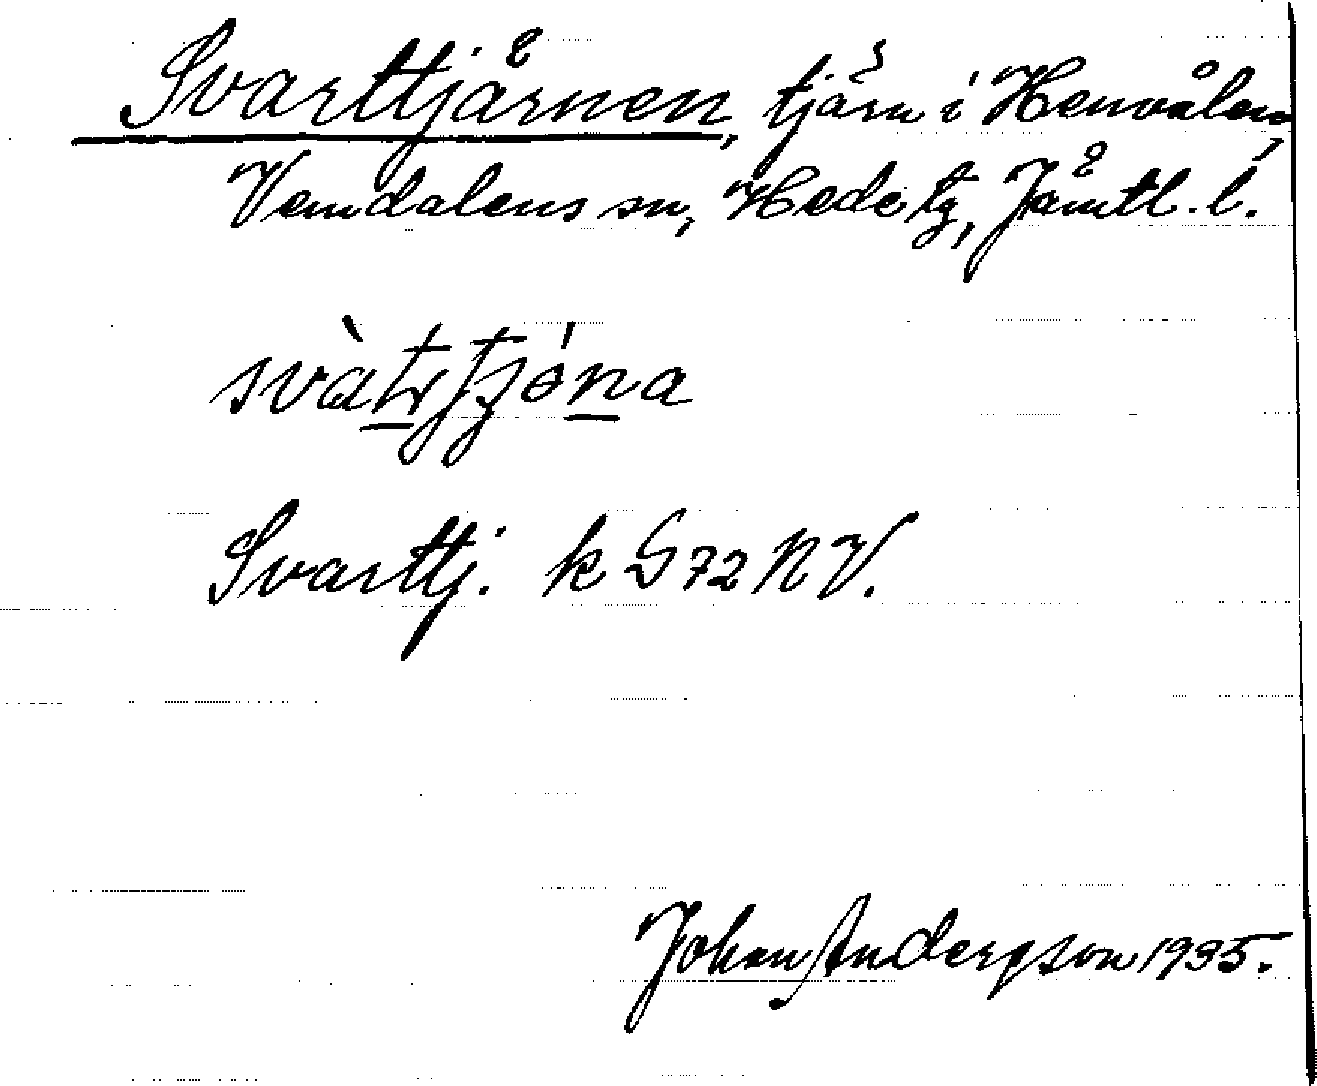 Svarttjärnen, tjärn i Henvålen,
Vemdalens sn, Hede tg, Jämtl. l.
Svarttj. k S 72 NV.
Johan Andersson 1935.